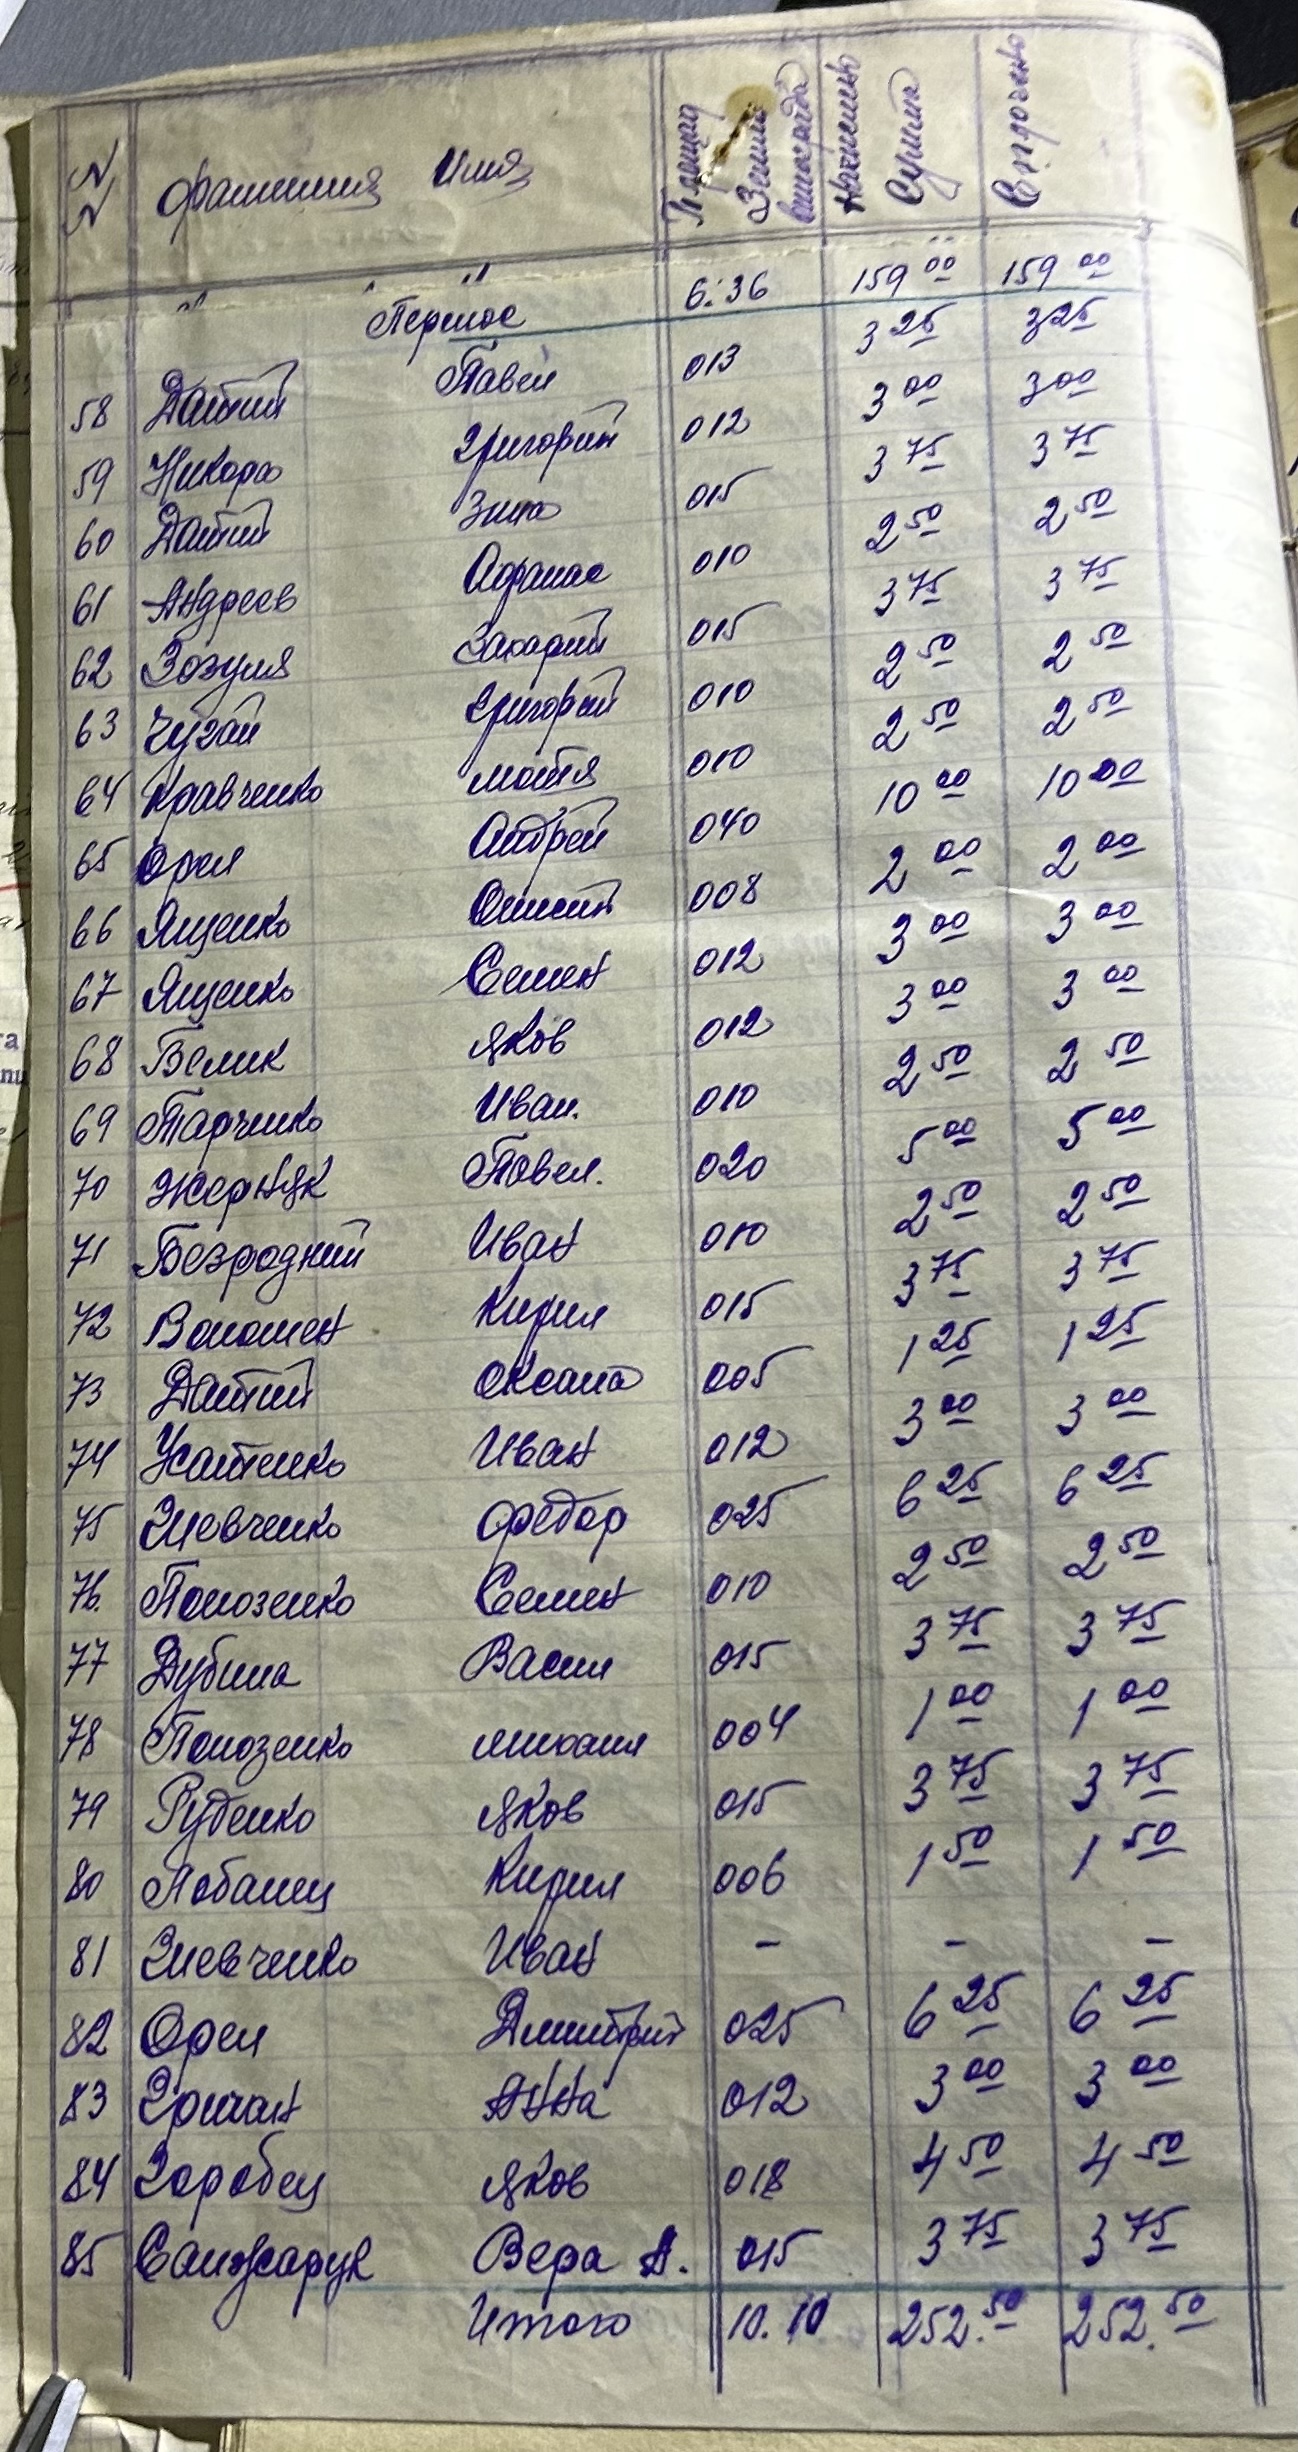 №№ Фамилия Имя Площад Зани винограда Начислено Сумма Строчено
" " " Перенос 6.36 159 00 159 00
58 Датий Павел 013 3 25 3 25
59 Никора Григорий 012 3 00 3 00
60 Датий Зина 015 3 75 3 75
61 Андреев Афанас 010 2 50 2 50
62 Зозуля Захарий 015 3 75 3 75
63 Чугай Григорий 010 2 50 2 50
64 Кравченко Мотя 010 2 50 2 50
65 Орел Андрей 040 10 00 10 00
66 Ященко 008 2 00 2 00
67 Ященко Семен 012 3 00 3 00
68 Белик Яков 012 3 00 3 00
69 Тарченко Иван. 010 2 50 2 50
70 Жерняк Павел. 020 5 00 5 00
71 Безродний Иван 010 2 50 2 50
72 Волошен Кирил 015 3 75 3 75
73 Датий Оксана 005 1 25 1 25
74 Усатенко Иван 012 3 00 3 00
75 Шевченко Федор 025 6 25 6 25
76. Полозенко Семен 010 2 50 2 50
77 Дубина Васил 015 3 75 3 75
78 Полозенко Михаил 004 1 00 1 00
79 Руденко Яков 015 3 75 3 75
80 Лобанец Кирил 006 1 50 1 50
81 Шевченко Иван - - -
82 Орел Дмитрий 025 6 25 6 25
83 Гричан Анна 012 3 00 3 00
84 Горобец Яков 018 4 50 4 50
85 Санжарук Вера А. 015 3 75 3 75
Итого 10.10 252.50 252.50